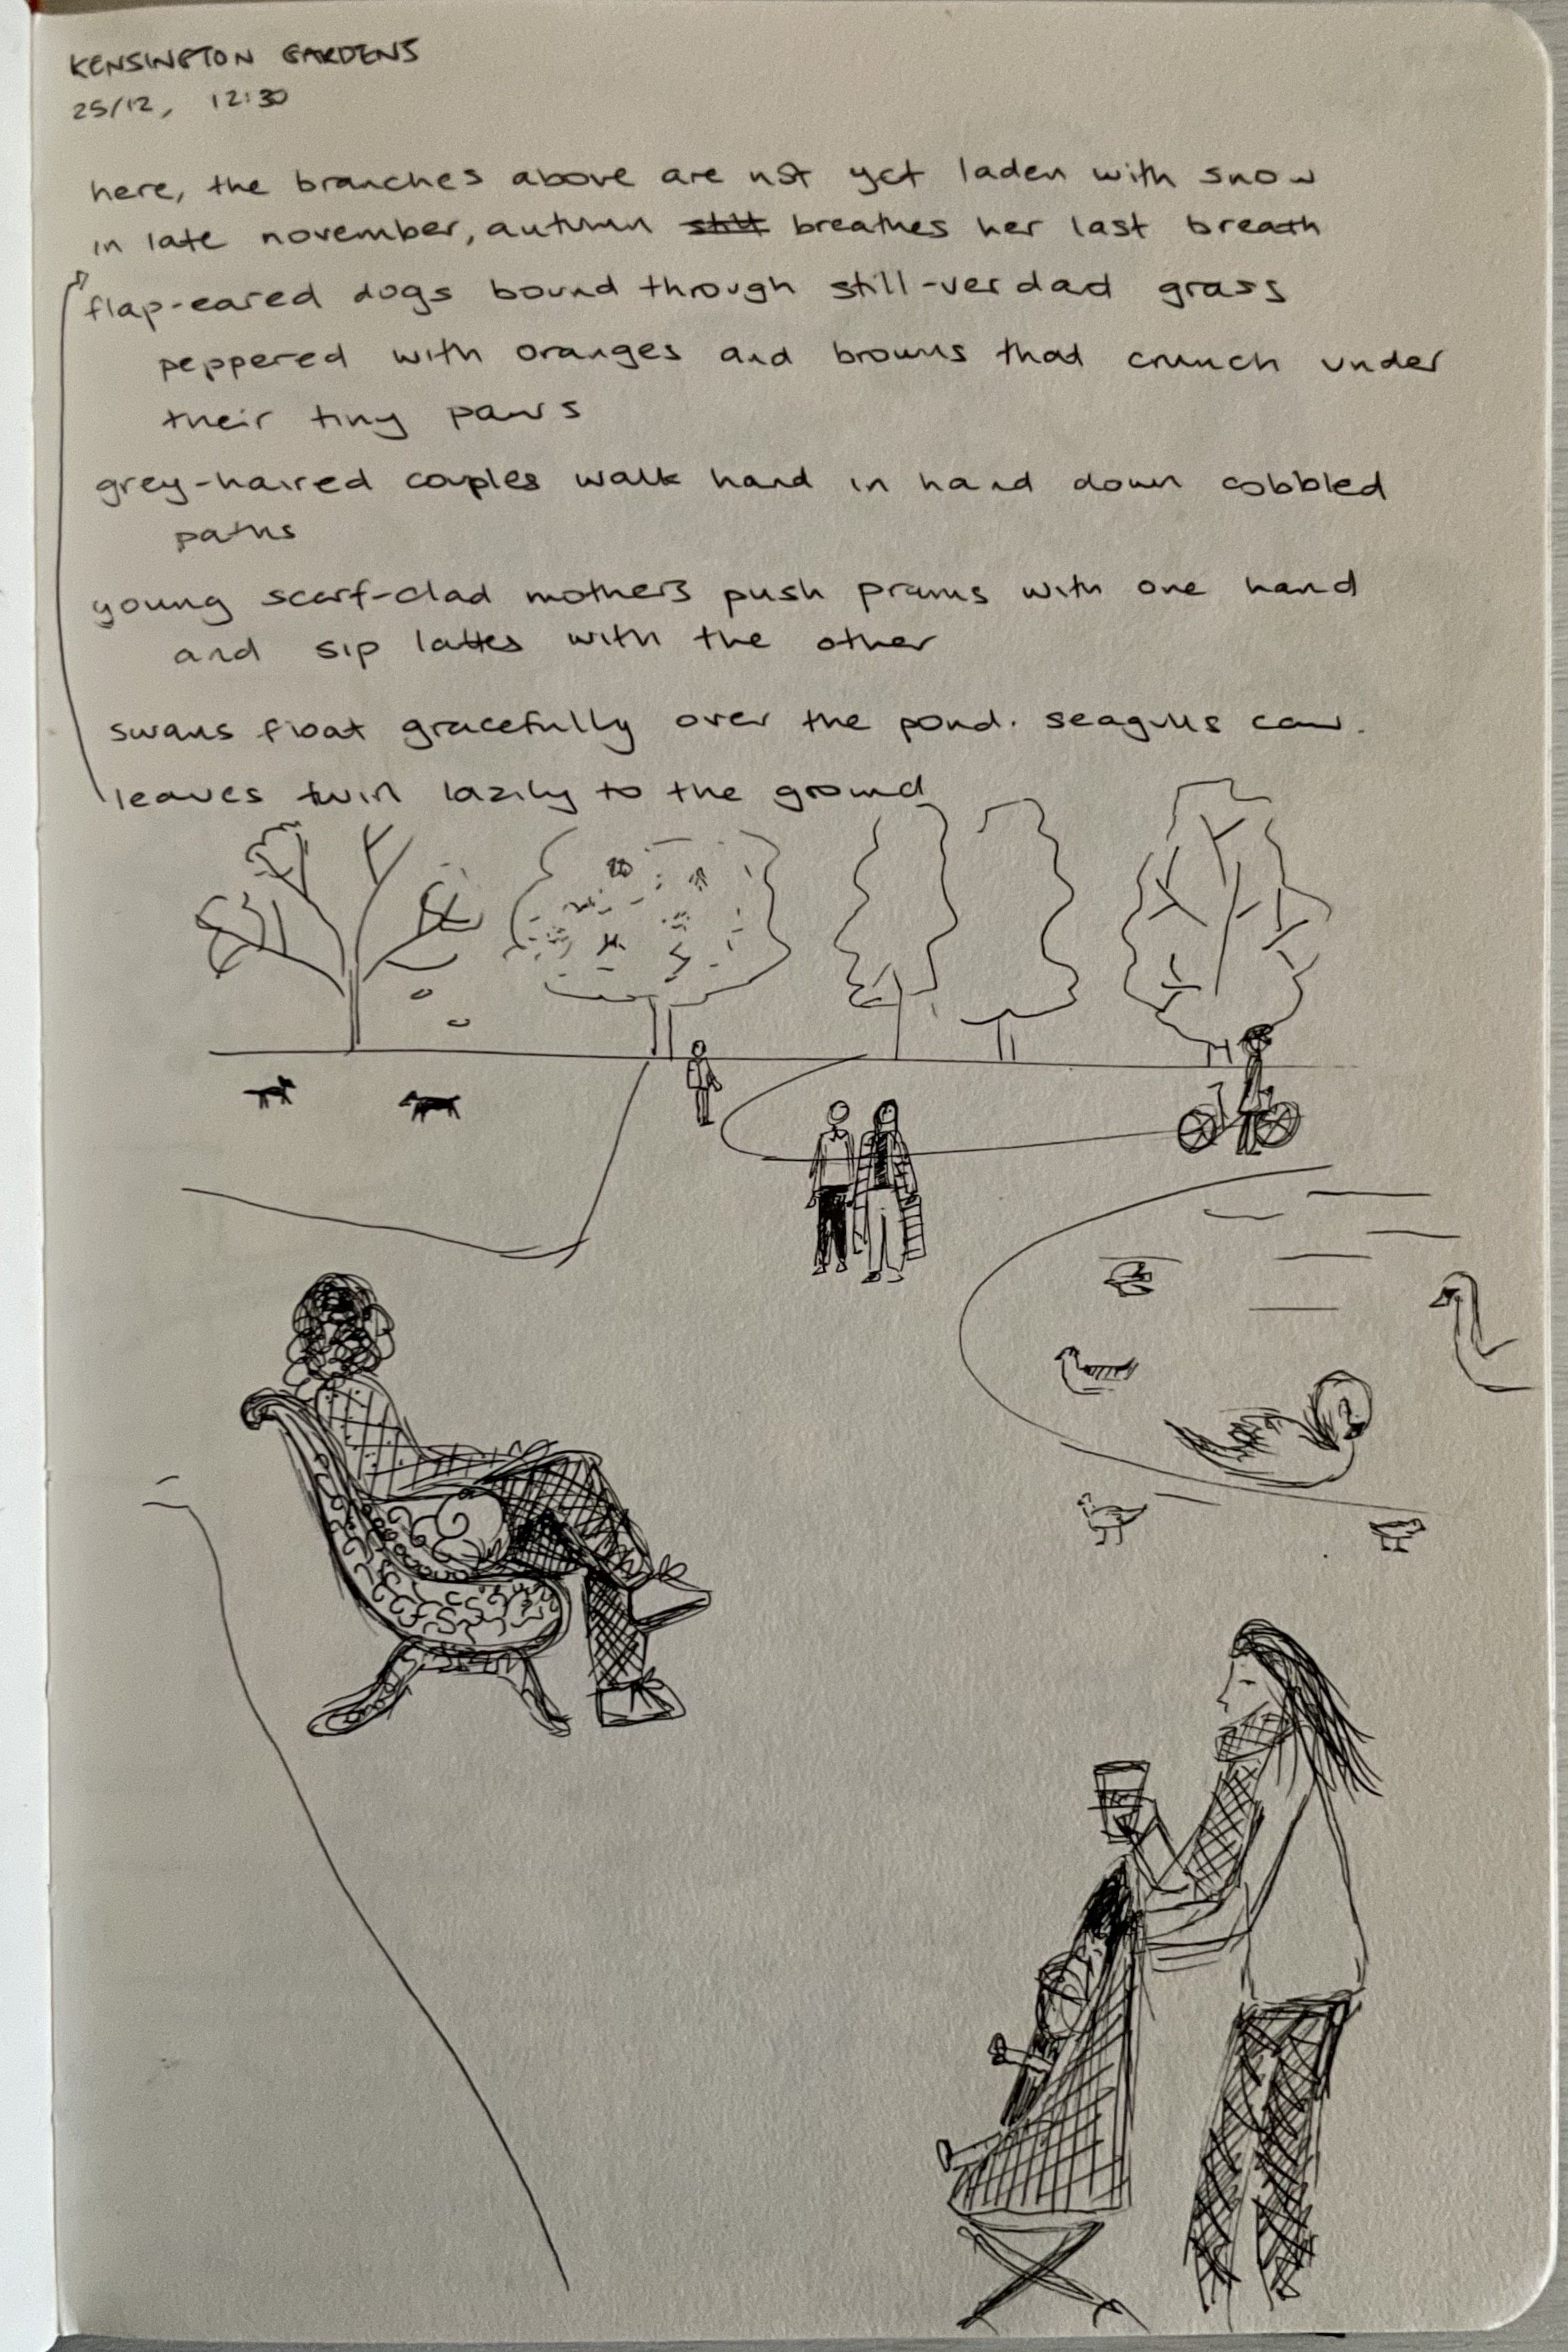 KENSINGTON GARDENS
25/12, 12:30
here, the branches above are not yet laden with snow
in late november, autumn still breathes her last breath
flap-eared dogs bound through still-verdad grass
peppered with oranges and browns that crunch under
their tiny paws
grey-haired couples walk hand in hand down cobbled
paths
young scarf-clad mothers push prams with one hand
and sip lattes with the other
swans float gracefully over the pond. seagulls caw.
leaves twirl lazily to the ground